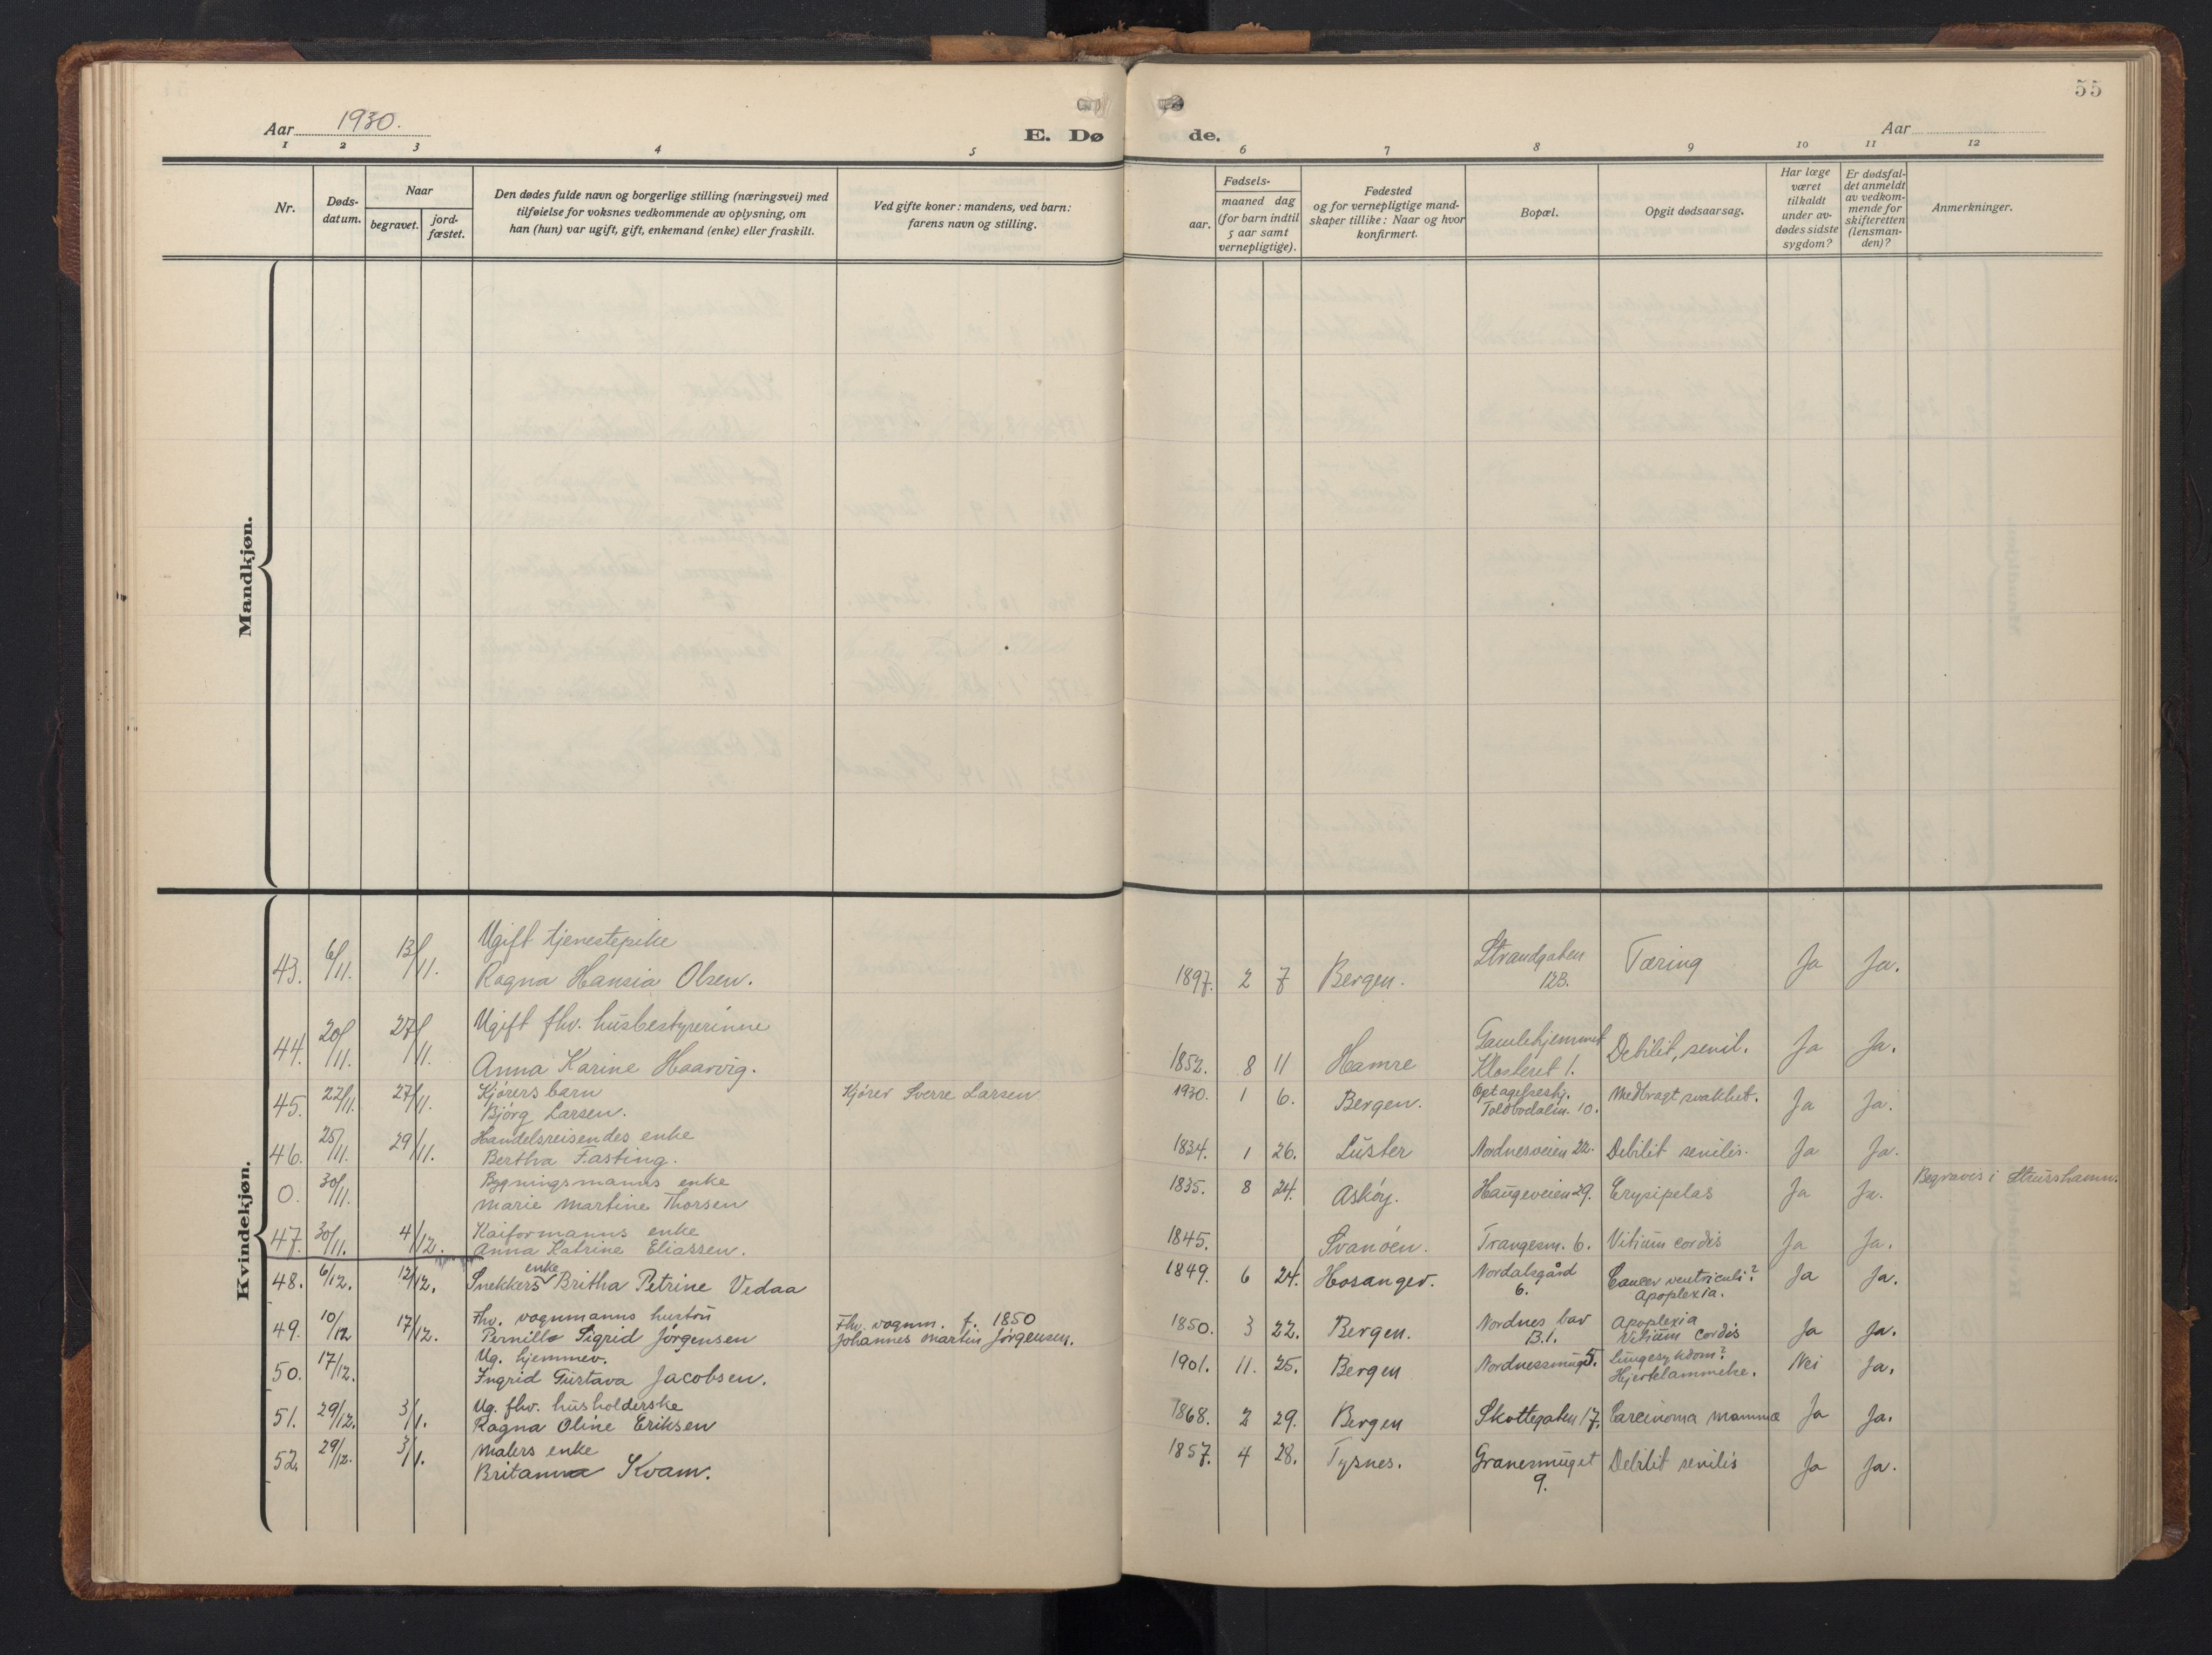 55
Aar 1930.
E. Dø de.
Aar
1 2 3 4 5 6 7 8 9 10 11 12
Nr.
Døds-
datum.
Naar
begravet.
jord-
fæstet.
Den dødes fulde navn og borgerlige stilling (næringsvei) med
tilføielse for voksnes vedkommende av oplysning, om
han (hun) var ugift, gift, enkemand (enke) eller fraskilt.
Ved gifte koner: mandens, ved barn:
farens navn og stilling.
Fødsels-
aar.
maaned dag
(for barn indtil
5 aar samt
vernepligtige).
Fødested
og for vernepligtige mand-
skaper tillike: Naar og hvor
konfirmert.
Bopæl.
Opgit dødsaarsag.
Har læge
været
tilkaldt
under av-
dødes sidste
sygdom?
Er dødsfal-
det anmeldt
av vedkom-
mende for
skifteretten
(lensman-
den)?
Anmerkninger.
Mandkjøn.
Kvindekjøn.
43. 6/11. 13/11. Ugift tjenestepike
Ragna Hansia Olsen. 1897. 2 7 Bergen. Strandgaten
123. Tæring Ja Ja.
44. 20/11. 27/11. Ugift fhv. husbestyrerinne
Anna Karine Haarvig. 1852. 8 11 Hamre Gamlehjemmet
Klosteret 1. Debilit, senil. Ja Ja.
45. 22/11. 27/11. Kjørers barn
Bjørg Larsen. Kjører Sverre Larsen 1930. 1 6. Bergen. Optagelseshj.
Toldbodalm. 10. Medbragt svakhet. Ja Ja.
46. 25/11. 29/11. Handelsreisendes enke
Bertha Fasting. 1834. 1 26. Luster Nordnesveien 22. Debilit senilis. Ja Ja.
0. 30/11. Bygningsmanns enke
Marie Martine Thorsen 1835. 8 24. Askøy. Haugeveien 29. Erysipelas Ja Ja. Begraves i Strusshamn.
47. 30/11. 4/12. Kaiformanns enke
Anna Katrine Eliassen. 1845. Svanøen. Trangesm. 6. Vitium cordis Ja Ja.
48. 6/12. 12/12. Snekkers enke Britha Petrine Vedaa 1849. 6 24. Hosanger. Nordalsgård
6. Cancer ventriculi?
Apoplexia. Ja Ja.
49. 10/12 17/12. Fhv. vognmanns hustru
Pernille Sigrid Jørgensen Fhv. vognm. f. 1850
Johannes Martin Jørgensen. 1850. 3 22. Bergen. Nordnes bar
B.1. Apoplexia
Vitium cordis Ja Ja.
50. 17/12. Ug. hjemmev.
Ingrid Gustava Jacobsen. 1901. 11. 25. Bergen Nordnessmug 5. Lungesykdom?
Hjertelammelse. Nei Ja.
51. 29/12. 3/1. Ug. fhv. husholderske
Ragna Oline Eriksen 1868. 2 29. Bergen Skottegaten 17. Carcinoma mammæ Ja Ja.
52. 29/12. 3/1. Malers enke
Britanna Kvam. 1857. 4 28. Tysnes. Granesmuget
9. Debilit senilis Ja Ja.